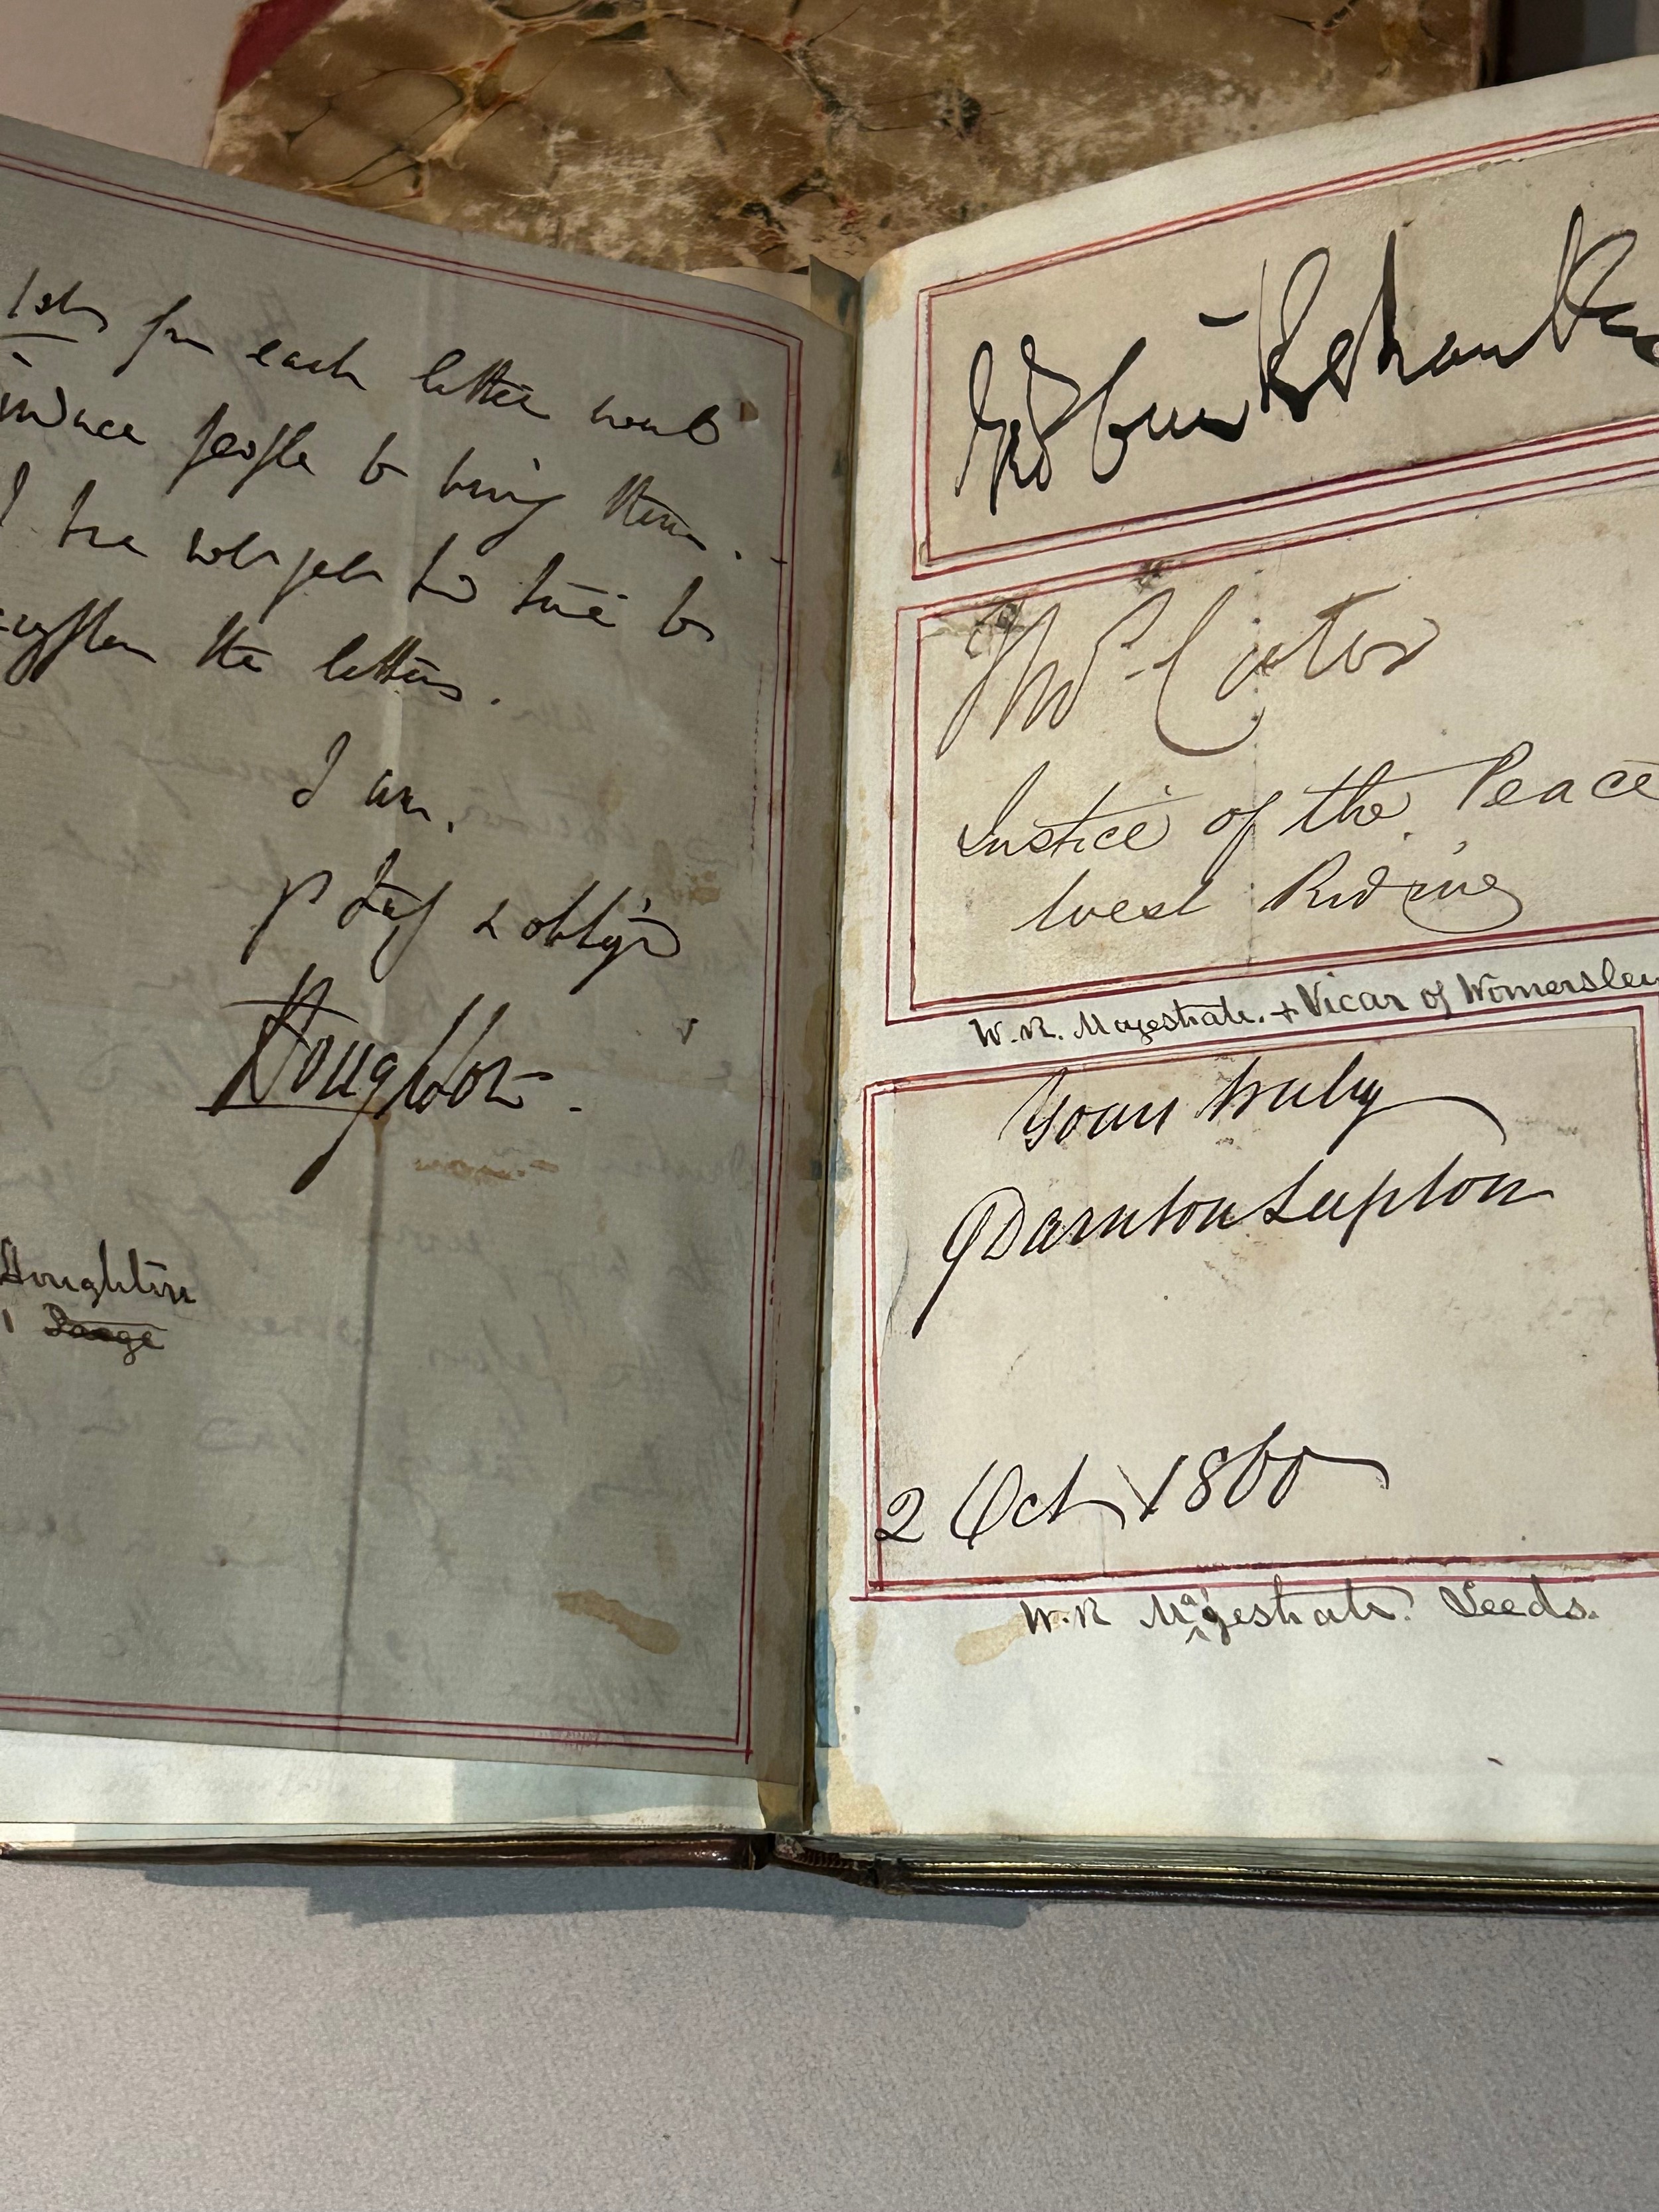 1s/ for each letter would
induce people to bring them.
I have not yet had time to
the letters.
I am,
Yr & oblig'd
Houghton.
Houghton
Thos. Cator
Justice of the Peace
West Riding
W.R. Magestrate. + Vicar of Womersley
Yours truly
Darnton Lupton
2 Oct 1860
W.R Magestrate. Leeds.